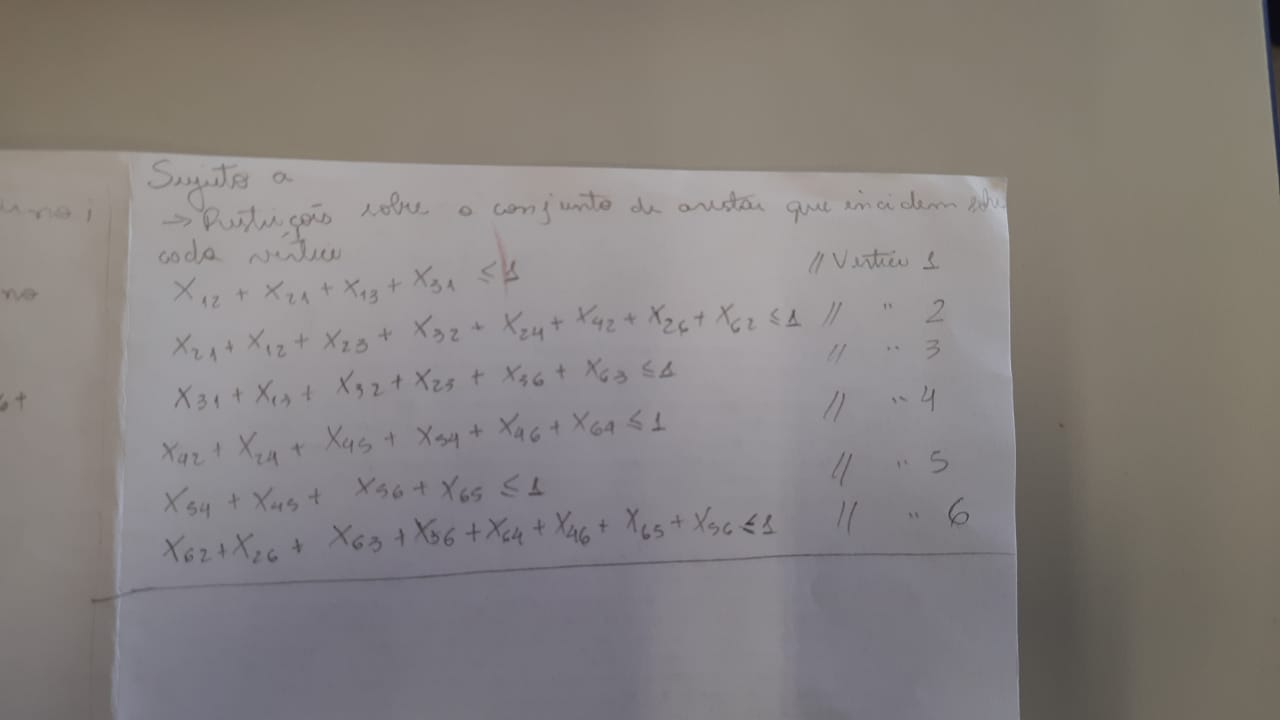 Sujeitos a
→ Restrições sobre o conjunto de arestas que incidem sobre
cada vértice
X₁₂ + X₂₁ + X₁₃ + X₃₁ ≤ 1 // Vértice 1
X₂₁ + X₁₂ + X₂₃ + X₃₂ + X₂₄ + X₄₂ + X₂₆ + X₆₂ ≤ 1 // " 2
X₃₁ + X₁₃ + X₃₂ + X₂₃ + X₃₆ + X₆₃ ≤ 1 // " 3
X₄₂ + X₂₄ + X₄₅ + X₅₄ + X₄₆ + X₆₄ ≤ 1 // " 4
X₅₄ + X₄₅ + X₅₆ + X₆₅ ≤ 1 // " 5
X₆₂ + X₂₆ + X₆₃ + X₃₆ + X₆₄ + X₄₆ + X₆₅ + X₅₆ ≤ 1 // " 6